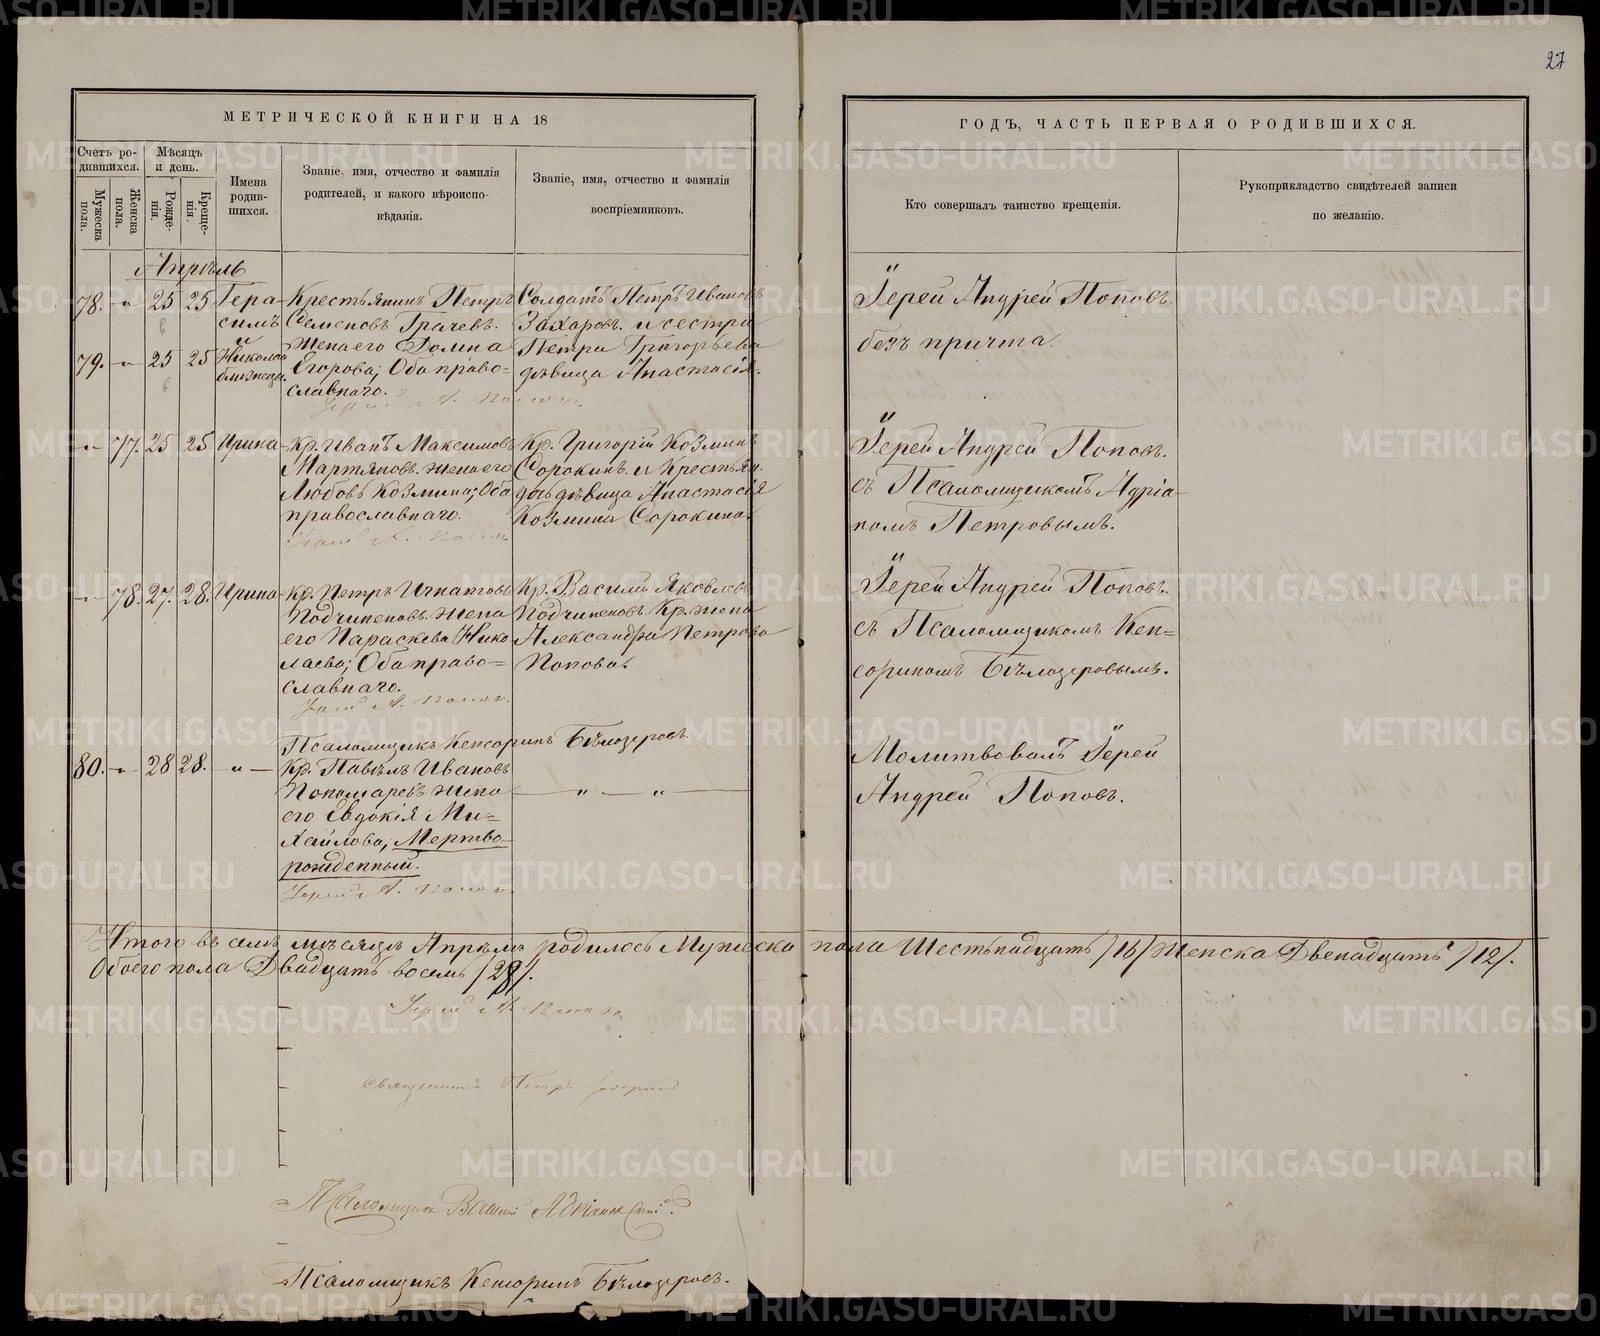 27
МЕТРИЧЕСКОЙ КНИГИ НА 18
ГОДЪ, ЧАСТЬ ПЕРВАЯ О РОДИВШИХСЯ.
Счетъ ро-
дившихся.
Мужеска
пола.
Женска
пола.
Мѣсяцъ
и день.
Рожде-
нія.
Креще-
нія.
Имена
родив-
шихся.
Званіе, имя, отчество и фамилія
родителей, и какого вѣроиспо-
вѣданія.
Званіе, имя, отчество и фамилія
воспріемниковъ.
Кто совершалъ таинство крещенія.
Рукоприкладство свидѣтелей записи
по желанію.
Апрѣль
78. — „ 25 25 Гера
симъ
и
79. — „ 25 25 Николай
близнецы.
Крестьянинъ Петръ
Семеновъ Грачевъ.
Жена его Домна
Егорова; Оба право-
славнаго.
Іерей А. Попов
Солдатъ Петръ Ивановъ
Захаровъ. и сестра
Петра Григорьева
дѣвица Анастасія.
Іерей Андрей Поповъ
безъ причта.
— „ 77. 25 25 Ирина
Кр. Иванъ Максимовъ
Мартяновъ. жена его
Любовь Козмина; Оба
православнаго.
Іерей А. Попов
Кр. Григорій Козминъ
Сорокинъ. и Крестьян.
дочь дѣвица Анастасія
Козмина Сорокина.
Іерей Андрей Поповъ.
съ Псаломщикомъ Адріа-
номъ Петровымъ.
— „ 78. 27. 28. Ирина
Кр. Петръ Игнатовъ
Подчиненовъ. жена
его Параскева Нико
лаева; Оба право=
славнаго.
Іерей А. Попов
Кр. Василій Яковлевъ
Подчиненовъ. Кр. жена
Александра Петрова
Попова.
Іерей Андрей Поповъ.
съ Псаломщикомъ Кен=
сориномъ Бѣлозеровымъ.
Псаломщикъ Кенсоринъ Бѣлозеровъ.
80. — „ 28 28. — „ —
Кр. Павелъ Ивановъ
Пономаревъ жена
его Евдокія Ми=
хайлова; Мертво-
рожденный.
Іерей А. Попов
— „ — „ —
Молитвовалъ Іерей
Андрей Поповъ.
Итого въ семъ мѣсяцѣ Апрѣлѣ родилось Мужеска пола Шестьнадцать /16/ Женска Двенадцать /12/.
Обоего пола Двадцать восемь /28/.
Іерей А. Попов
Священникъ Петръ
Псаломщикъ
Псаломщикъ Кенсоринъ Бѣлозеровъ.
METRIKI.GASO-URAL.RU